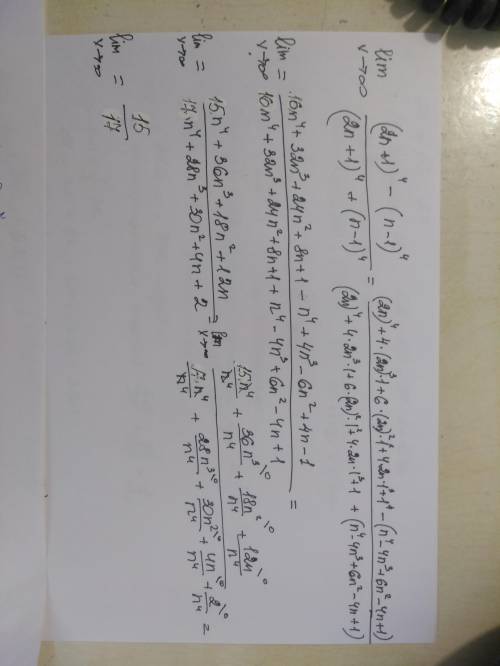 lim x→∞ ((2n+1)^4 - (n-1)^4) / ((2n+1)^4 + (n-1)^4) = ((2n)^4 + 4·(2n)^3·1 + 6·(2n)^2·1 + 4·2n·1^3 + 1^4 - (n^4 - 4n^3 + 6n^2 - 4n + 1)) / ((2n)^4 + 4·2n^3·1 + 6·(2n)^2·1^2 + 4·2n·1^3 + 1 + (n^4 - 4n^3 + 6n^2 - 4n + 1))
lim x→∞ = (16n^4 + 32n^3 + 24n^2 + 8n + 1 - n^4 + 4n^3 - 6n^2 + 4n - 1) / (16n^4 + 32n^3 + 24n^2 + 8n + 1 + n^4 - 4n^3 + 6n^2 - 4n + 1) =
lim x→∞ = (15n^4 + 36n^3 + 18n^2 + 12n) / (17n^4 + 28n^3 + 30n^2 + 4n + 2) = lim x→∞ (15n^4/n^4 + 36n^3/n^4 + 18n^2/n^4 + 12n/n^4) / (17n^4/n^4 + 28n^3/n^4 + 30n^2/n^4 + 4n/n^4 + 2/n^4) =
lim x→∞ = 15/17